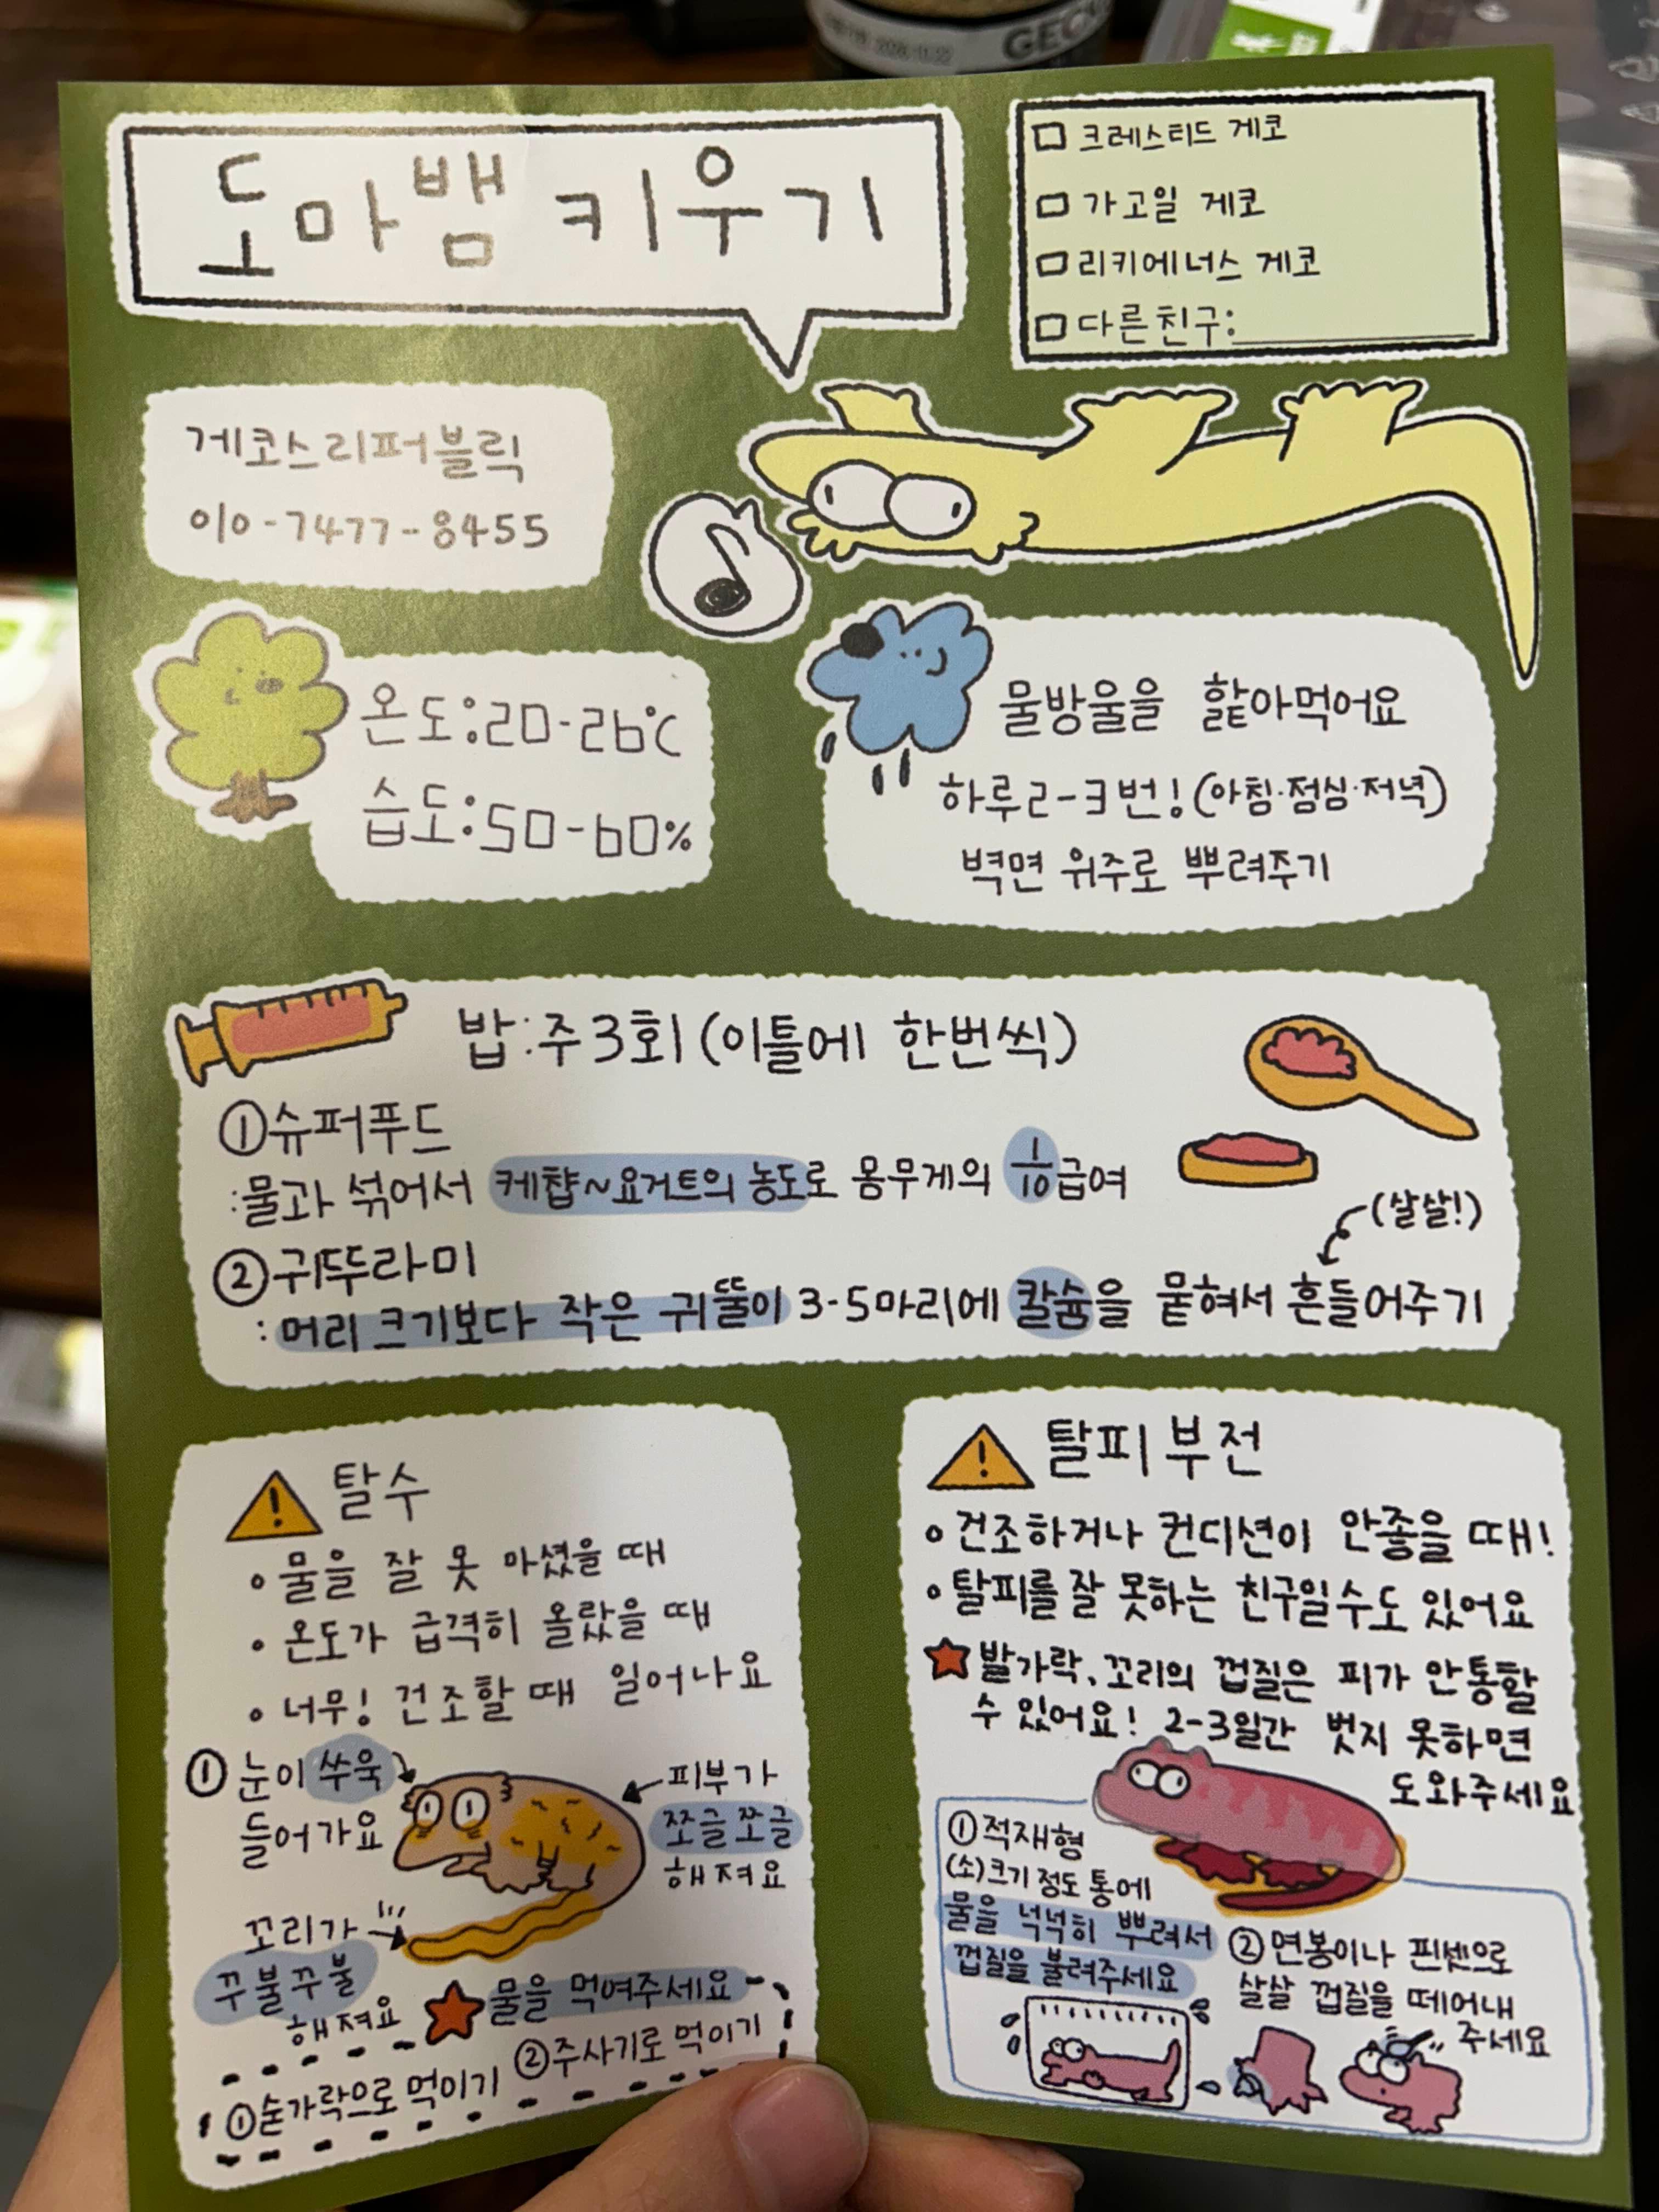 GECK
도마뱀 키우기
□ 크레스티드 게코
□ 가고일 게코
□ 리키에너스 게코
□ 다른친구:
게코스리퍼블릭
010-7477-8455
온도:20-26℃
습도:50-60%
물방울을 핥아먹어요
하루2-3번!(아침·점심·저녁)
벽면 위주로 뿌려주기
밥:주3회(이틀에 한번씩)
①슈퍼푸드
:물과 섞어서 케챱~요거트의 농도로 몸무게의 1/10급여
②귀뚜라미
(살살!)
:머리크기보다 작은 귀뚤이 3-5마리에 칼슘을 뭍혀서 흔들어주기
⚠ 탈수
• 물을 잘 못 마셨을 때
• 온도가 급격히 올랐을 때
• 너무! 건조할때 일어나요
① 눈이 쑤욱
들어가요
피부가
쪼글쪼글
해져요
꼬리가
꾸불꾸불
해져요
★물을 먹여주세요
①숟가락으로 먹이기 ②주사기로 먹이기
⚠ 탈피부전
• 건조하거나 컨디션이 안좋을 때!
• 탈피를 잘 못하는 친구일수도 있어요
★발가락, 꼬리의 껍질은 피가 안통할
수 있어요! 2-3일간 벗지 못하면
도와주세요
①적재형
(소)크기 정도 통에
물을 넉넉히 뿌려서
껍질을 불려주세요
②면봉이나 핀셋으로
살살 껍질을 떼어내
주세요